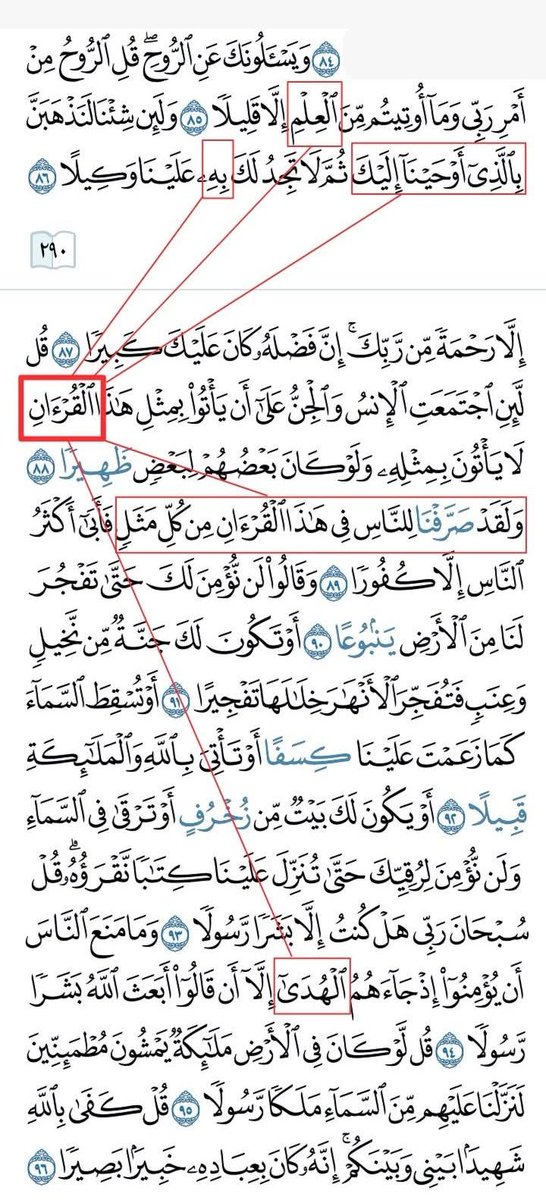 ۝٨٤ وَيَسْـَٔلُونَكَ عَنِ ٱلرُّوحِۖ قُلِ ٱلرُّوحُ مِنْ
أَمْرِ رَبِّى وَمَآ أُوتِيتُم مِّنَ ٱلْعِلْمِ إِلَّا قَلِيلًا ۝٨٥ وَلَئِن شِئْنَا لَنَذْهَبَنَّ
بِٱلَّذِىٓ أَوْحَيْنَآ إِلَيْكَ ثُمَّ لَا تَجِدُ لَكَ بِهِۦ عَلَيْنَا وَكِيلًا ۝٨٦
٢٩٠
إِلَّا رَحْمَةً مِّن رَّبِّكَۚ إِنَّ فَضْلَهُۥ كَانَ عَلَيْكَ كَبِيرًا ۝٨٧ قُل
لَّئِنِ ٱجْتَمَعَتِ ٱلْإِنسُ وَٱلْجِنُّ عَلَىٰٓ أَن يَأْتُوا۟ بِمِثْلِ هَٰذَا ٱلْقُرْءَانِ
لَا يَأْتُونَ بِمِثْلِهِۦ وَلَوْ كَانَ بَعْضُهُمْ لِبَعْضٍ ظَهِيرًا ۝٨٨
وَلَقَدْ صَرَّفْنَا لِلنَّاسِ فِى هَٰذَا ٱلْقُرْءَانِ مِن كُلِّ مَثَلٍ فَأَبَىٰٓ أَكْثَرُ
ٱلنَّاسِ إِلَّا كُفُورًا ۝٨٩ وَقَالُوا۟ لَن نُّؤْمِنَ لَكَ حَتَّىٰ تَفْجُرَ
لَنَا مِنَ ٱلْأَرْضِ يَنۢبُوعًا ۝٩٠ أَوْ تَكُونَ لَكَ جَنَّةٌ مِّن نَّخِيلٍ
وَعِنَبٍ فَتُفَجِّرَ ٱلْأَنْهَٰرَ خِلَٰلَهَا تَفْجِيرًا ۝٩١ أَوْ تُسْقِطَ ٱلسَّمَآءَ
كَمَا زَعَمْتَ عَلَيْنَا كِسَفًا أَوْ تَأْتِىَ بِٱللَّهِ وَٱلْمَلَٰٓئِكَةِ
قَبِيلًا ۝٩٢ أَوْ يَكُونَ لَكَ بَيْتٌ مِّن زُخْرُفٍ أَوْ تَرْقَىٰ فِى ٱلسَّمَآءِ
وَلَن نُّؤْمِنَ لِرُقِيِّكَ حَتَّىٰ تُنَزِّلَ عَلَيْنَا كِتَٰبًا نَّقْرَؤُهُۥۗ قُلْ
سُبْحَانَ رَبِّى هَلْ كُنتُ إِلَّا بَشَرًا رَّسُولًا ۝٩٣ وَمَا مَنَعَ ٱلنَّاسَ
أَن يُؤْمِنُوٓا۟ إِذْ جَآءَهُمُ ٱلْهُدَىٰٓ إِلَّآ أَن قَالُوٓا۟ أَبَعَثَ ٱللَّهُ بَشَرًا
رَّسُولًا ۝٩٤ قُل لَّوْ كَانَ فِى ٱلْأَرْضِ مَلَٰٓئِكَةٌ يَمْشُونَ مُطْمَئِنِّينَ
لَنَزَّلْنَا عَلَيْهِم مِّنَ ٱلسَّمَآءِ مَلَكًا رَّسُولًا ۝٩٥ قُلْ كَفَىٰ بِٱللَّهِ
شَهِيدًۢا بَيْنِى وَبَيْنَكُمْۚ إِنَّهُۥ كَانَ بِعِبَادِهِۦ خَبِيرًۢا بَصِيرًا ۝٩٦